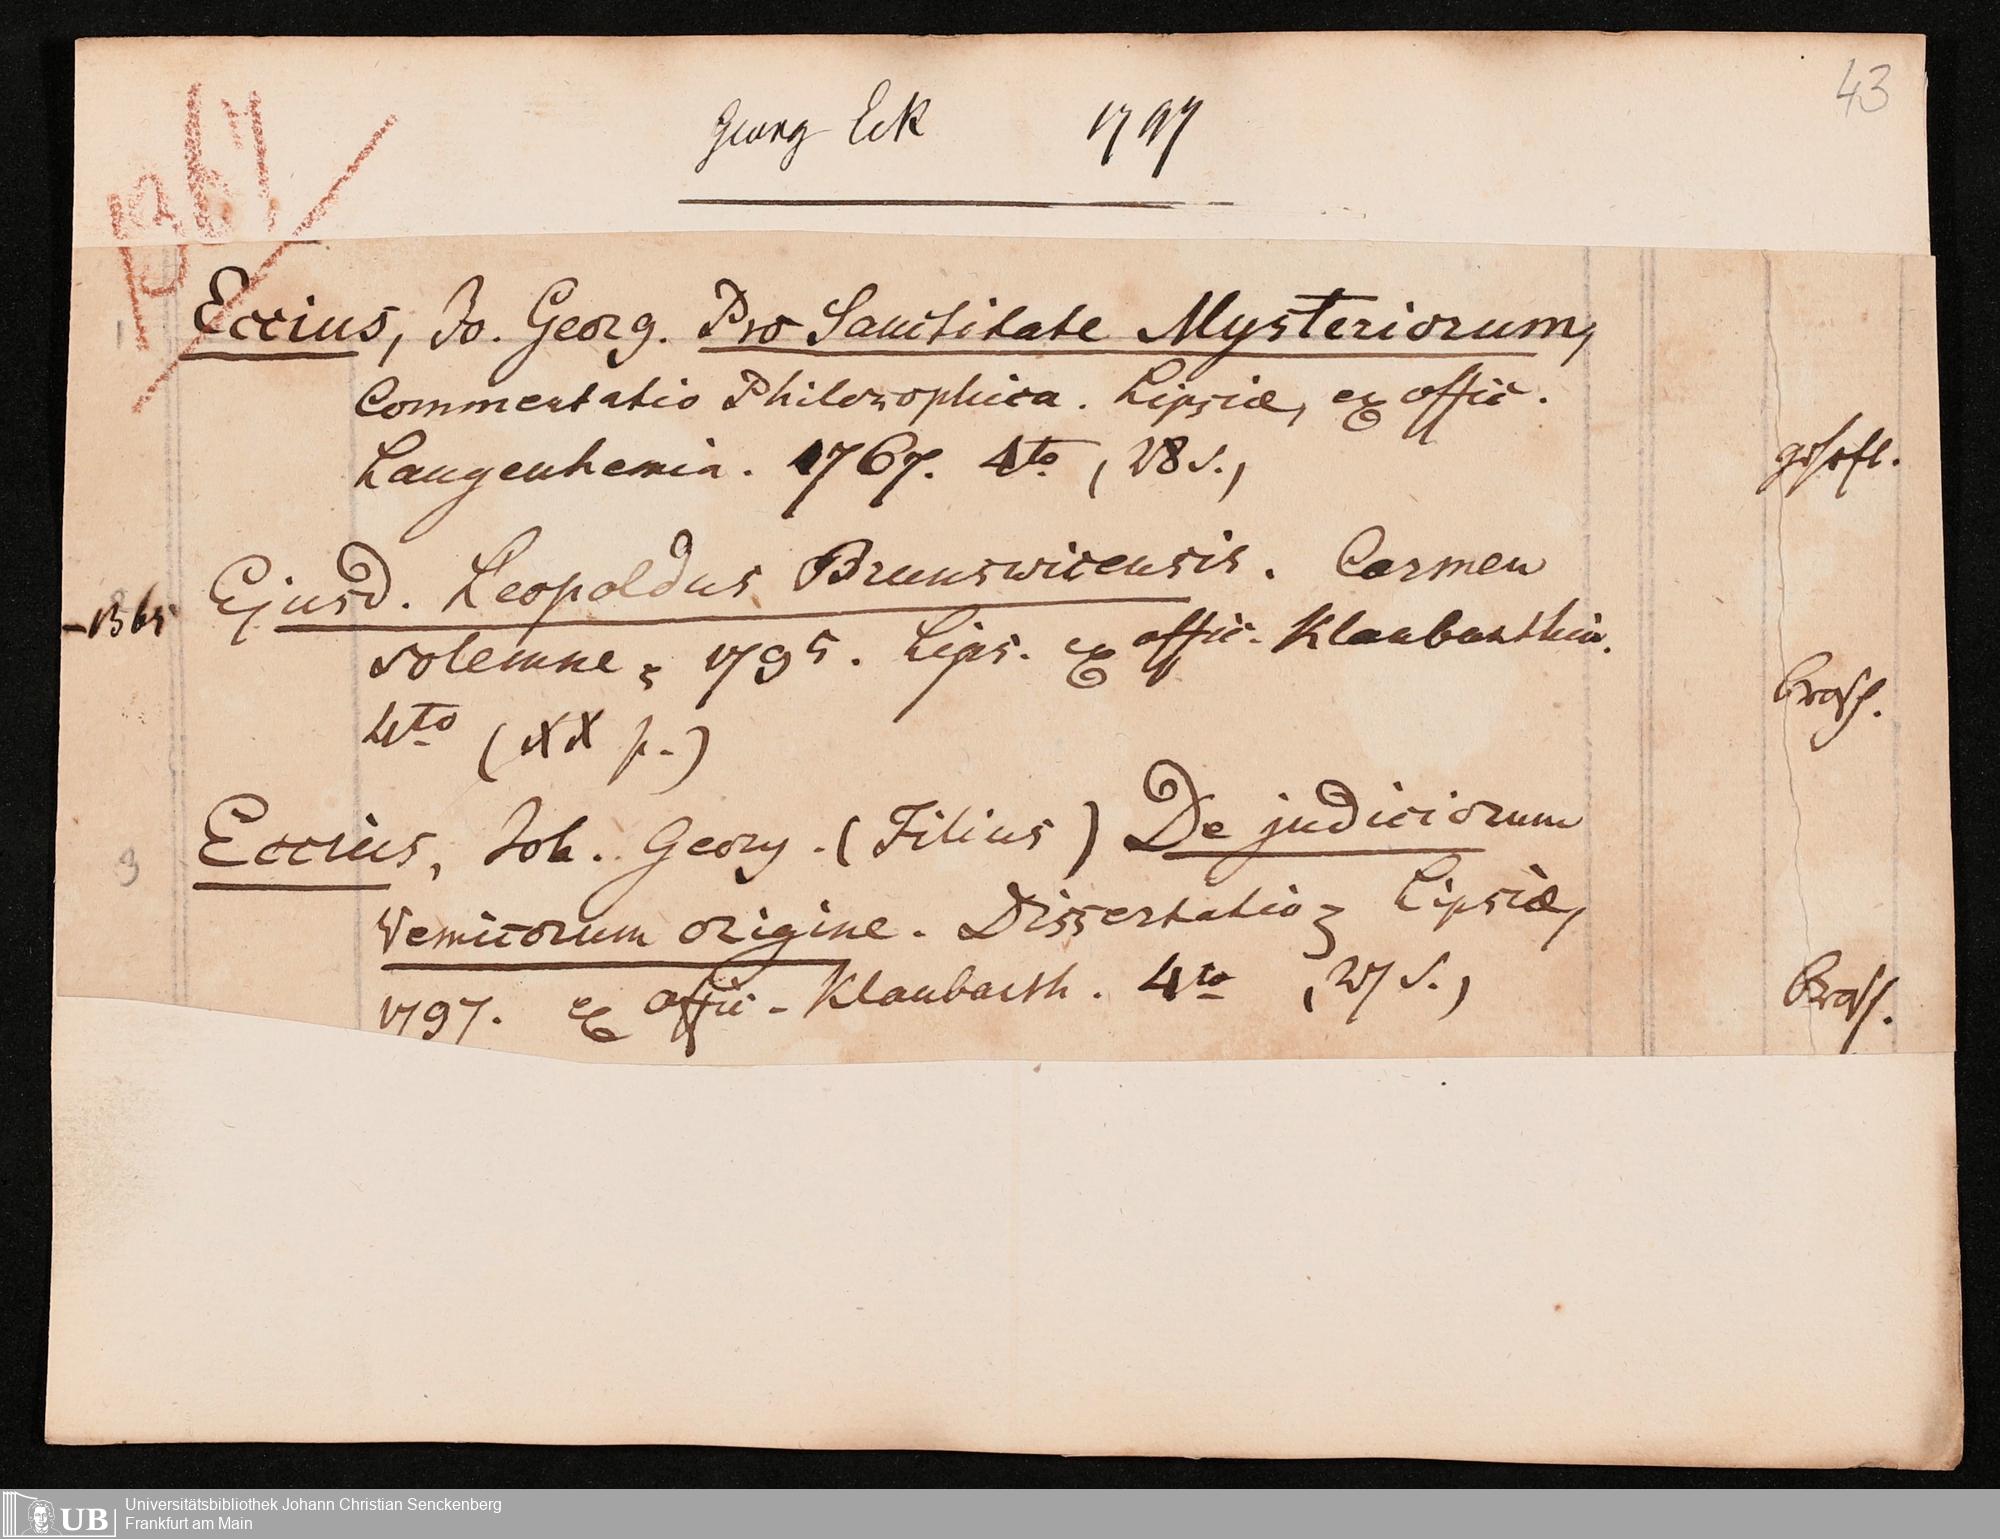 43
Georg Eck 1797
1367
Eccius, Jo. Georg. Pro Sanctitate Mysteriorum,
Commentatio Philosophica. Lipsiæ, ex offic.
Langenhemia. 1767. 4to (28 S.)
gehft.
Ejusd. Leopoldus Brunswicensis. Carmen
-1365
solemne, 1795. Lips. ex offic. Klaubarthia.
4to (XX p.)
Brosch.
Eccius, Joh. Georg. (Filius) De judiciorum
3
Vemicorum origine. Dissertatio, Lipsiæ,
1797. ex offic. Klaubarth. 4to (27 S.)
Brosch.
UB
Universitätsbibliothek Johann Christian Senckenberg
Frankfurt am Main